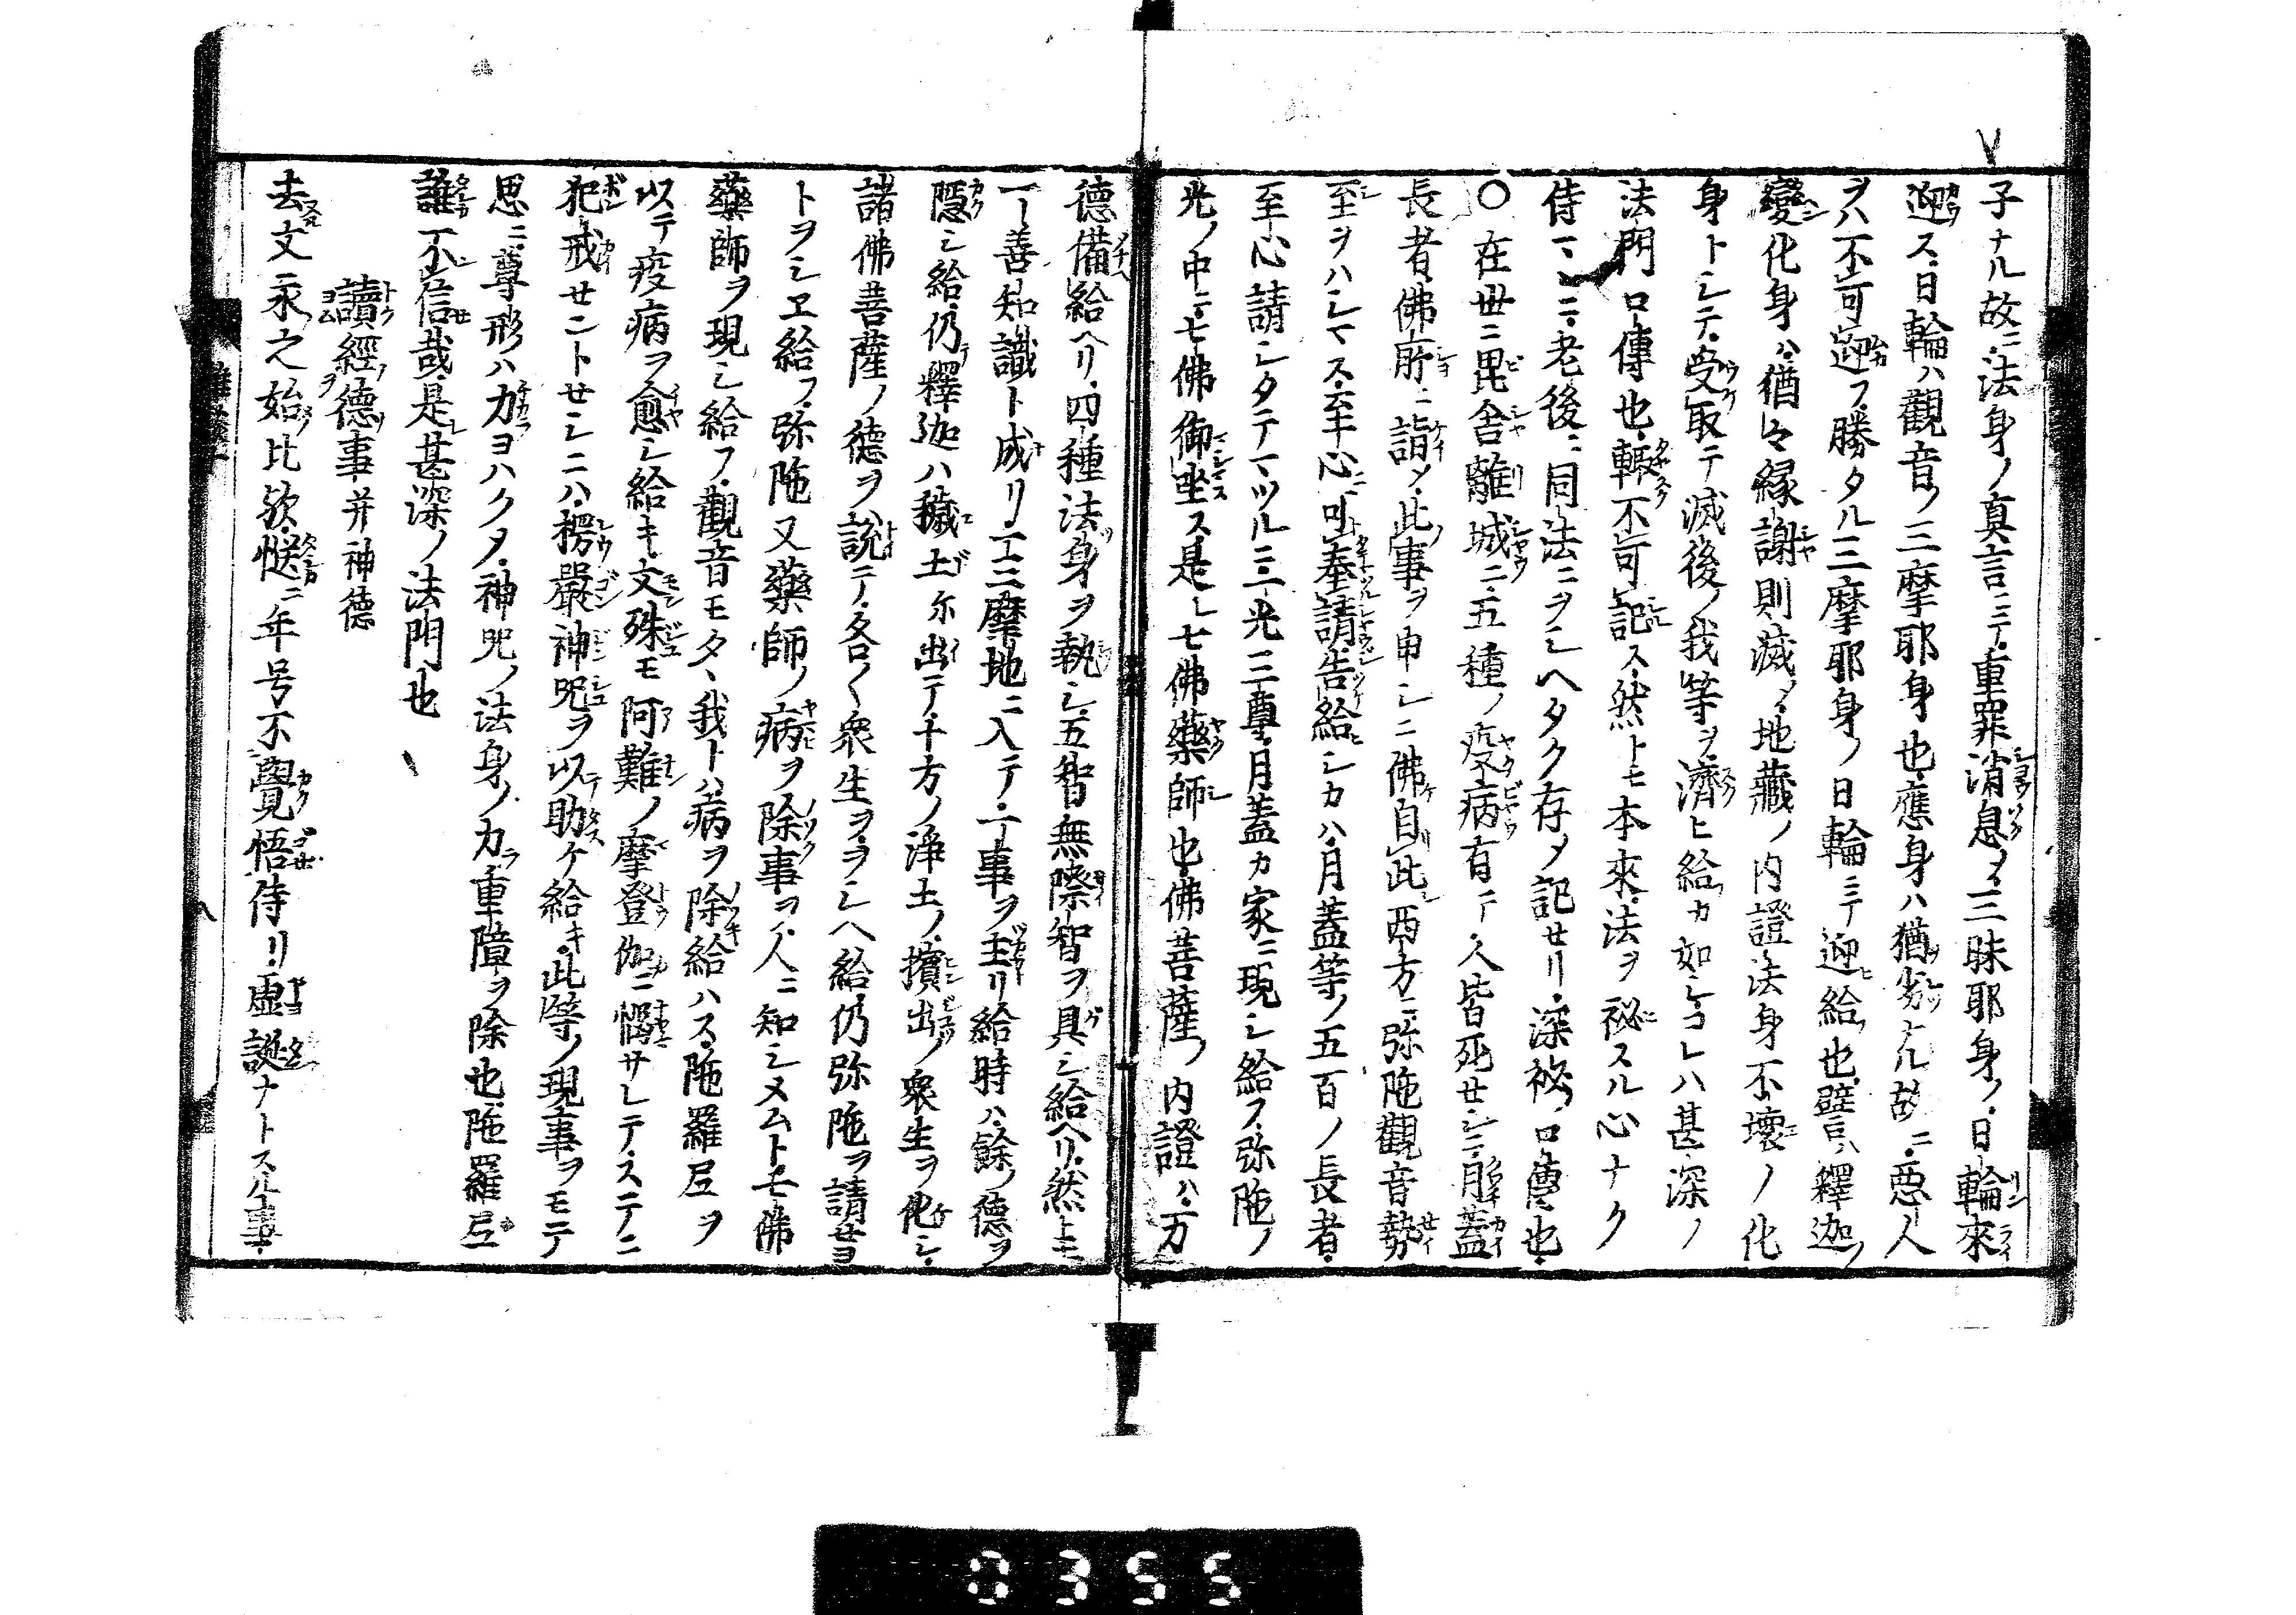 子ナル故ニ法身ノ真言ニテ重罪消息メ三昧耶身ノ日輪來
迎ス日輪ハ觀音ノ三摩耶身也應身ハ猶劣ナル故ニ悪人
ヲハ不可迎フ勝タル三摩耶身ノ日輪ニテ迎給也譬ハ釋迦ノ
變化身ハ猶々縁謝則滅メ地藏ノ内證法身不壞ノ化
身トシテ受取テ滅後ノ我等ヲ濟ヒ給カ如シコレハ甚深ノ
法門口傳也輙不可記ス然トモ本來法ヲ祕スル心ナク
侍マヽニ老後ニ同法ニヲシヘタク存メ記セリ深祕口傳也
○在世ニ毘舎離城ニ五種ノ疫病有テ人皆死セシニ月蓋
長者佛所ニ詣メ此事ヲ申シニ佛自此西方ニ弥陁觀音勢
至ヲハシマス至心ニ可奉請告給シカハ月蓋等ノ五百ノ長者
至心請シタテマツル三光三尊月蓋カ家ニ現シ給ス弥陁ノ
光ノ中ニ七佛御坐ス是レ七佛藥師也佛菩薩ノ内證ハ万
德備給ヘリ四種法身ヲ執シ五智無際智ヲ具シ給ヘリ然トモ
一善知識ト成リ一三摩地ニ入テ一事ヲ主リ給時ハ餘ノ德ヲ
隱シ給仍釋迦ハ穢土尓出テ十方ノ淨土ノ擯出ノ衆生ヲ化シ
諸佛菩薩ノ德ヲ說テ各々衆生ヲヲシヘ給仍弥陁ヲ請セヨ
トヲシヱ給フ弥陁又藥師ノ病ヲ除事ヲ人ニ知シメムトモ佛
藥師ヲ現シ給フ觀音モタヽ我トハ病ヲ除給ハス陁羅尼ヲ
以テ疫病ヲ愈シ給キ文殊モ阿難ノ摩登伽ニ惱サレテステニ
犯戒セントセシニハ楞嚴神咒ヲ以テ助ケ給キ此等ノ現事ヲモテ
思ニ尊形ハ力ヨハクメ神咒ノ法身ノ力重障ヲ除也陁羅尼
誰不信哉是甚深ノ法門也
讀經德事并神德
去文永之始比欤慥ニ年号不覺悟侍リ虛誕ナトスル事
0355